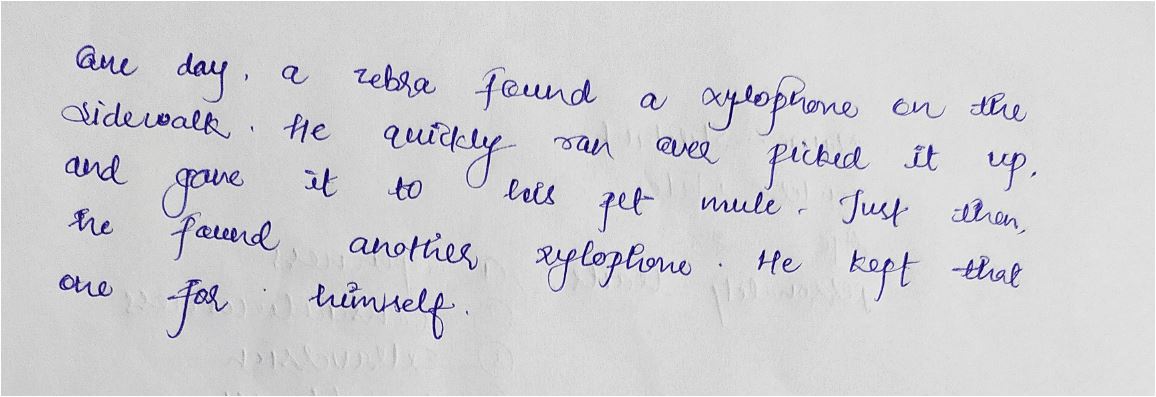 One day, a zebra found a xylophone on the
sidewalk. He quickly ran over picked it up,
and gave it to his pet mule. Just then,
he found another xylophone. He kept that
one for himself.